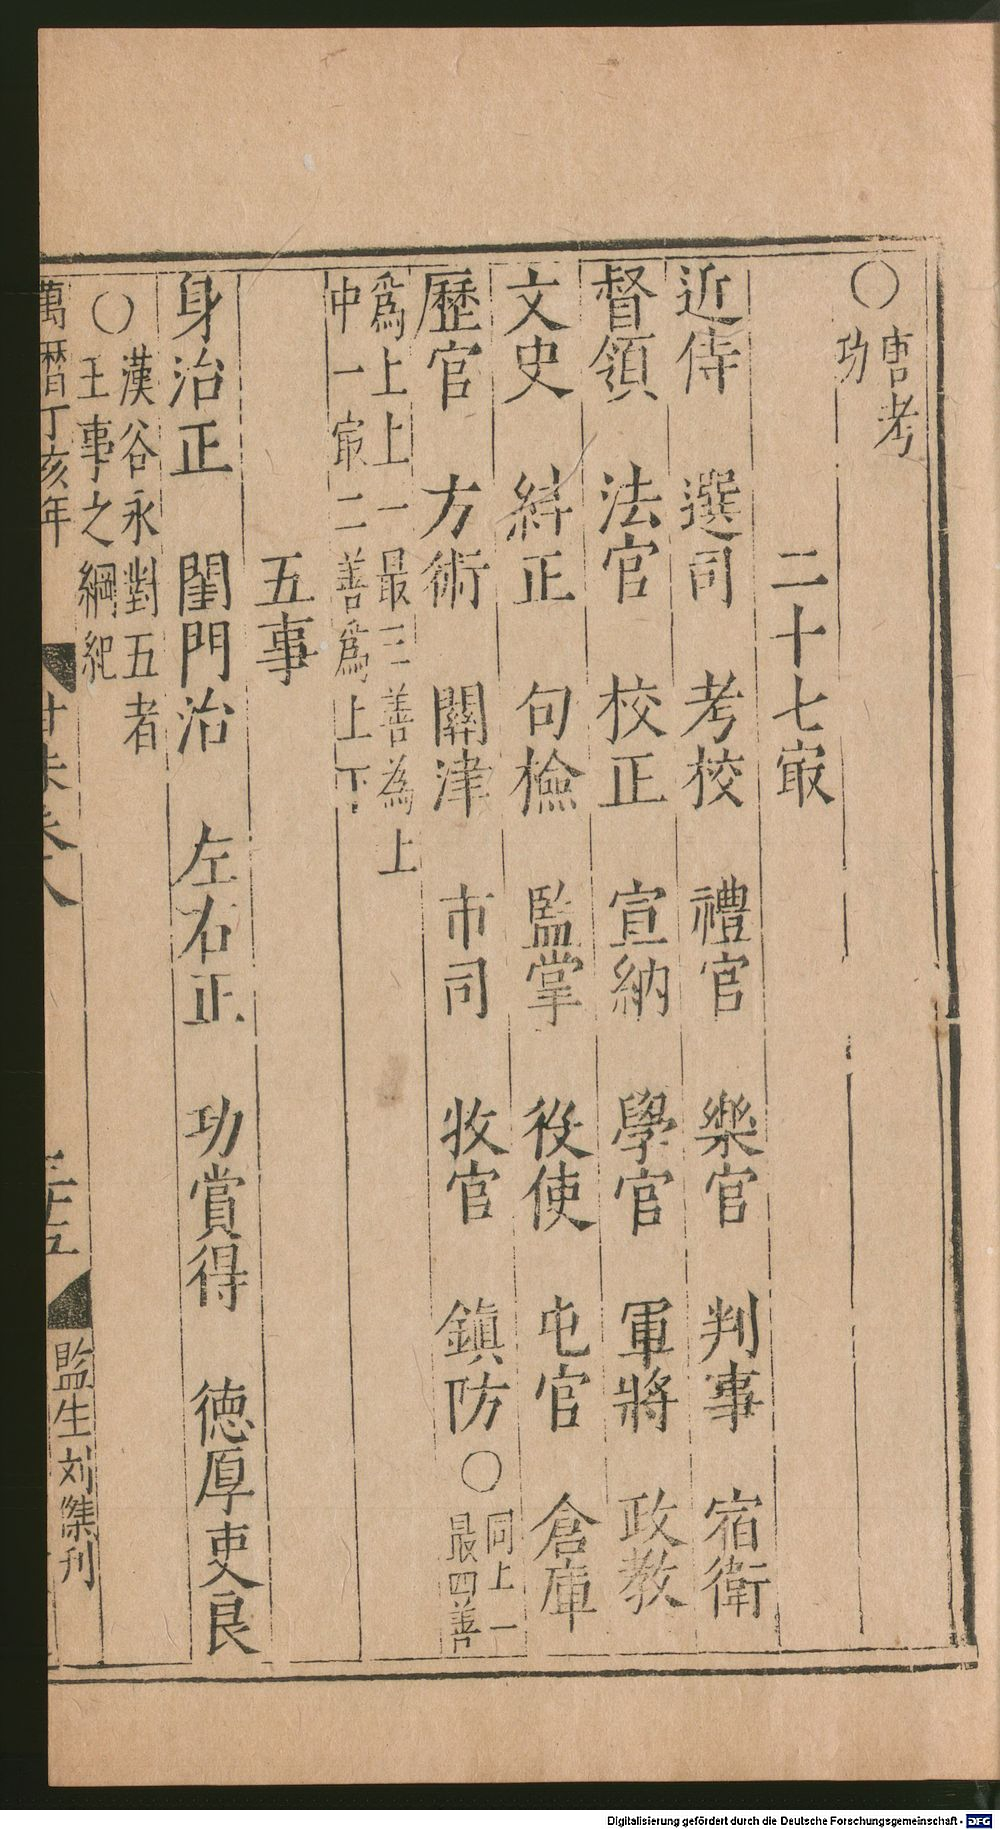 〇唐考
功
二十七㝡
近侍　選司　考校　禮官　樂官　判事　宿衛
督領　法官　校正　宣納　學官　軍將　政教
文史　紏正　句檢　監掌　役使　屯官　倉庫
歷官　方術　關津　市司　牧官　鎮防〇同上一
最四善
爲上上一最三善為上
中一㝡二善爲上下
五事
身治正　閨門治　左右正　功賞得　德厚吏良
〇漢谷永對五者
王事之綱紀
萬曆丁亥年
卷八
三十五
監生刘傑刊
Digitalisierung gefördert durch die Deutsche Forschungsgemeinschaft - DFG